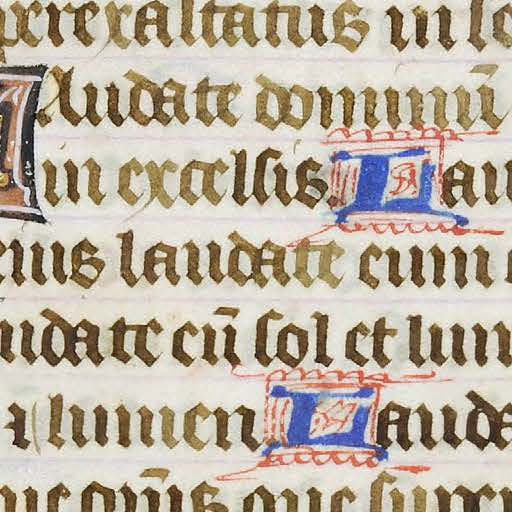 perexaltatus in
Laudate dominū
in excelsis. Lau
eius laudate eum
udate eū sol et lun
a lumen Lauda
que